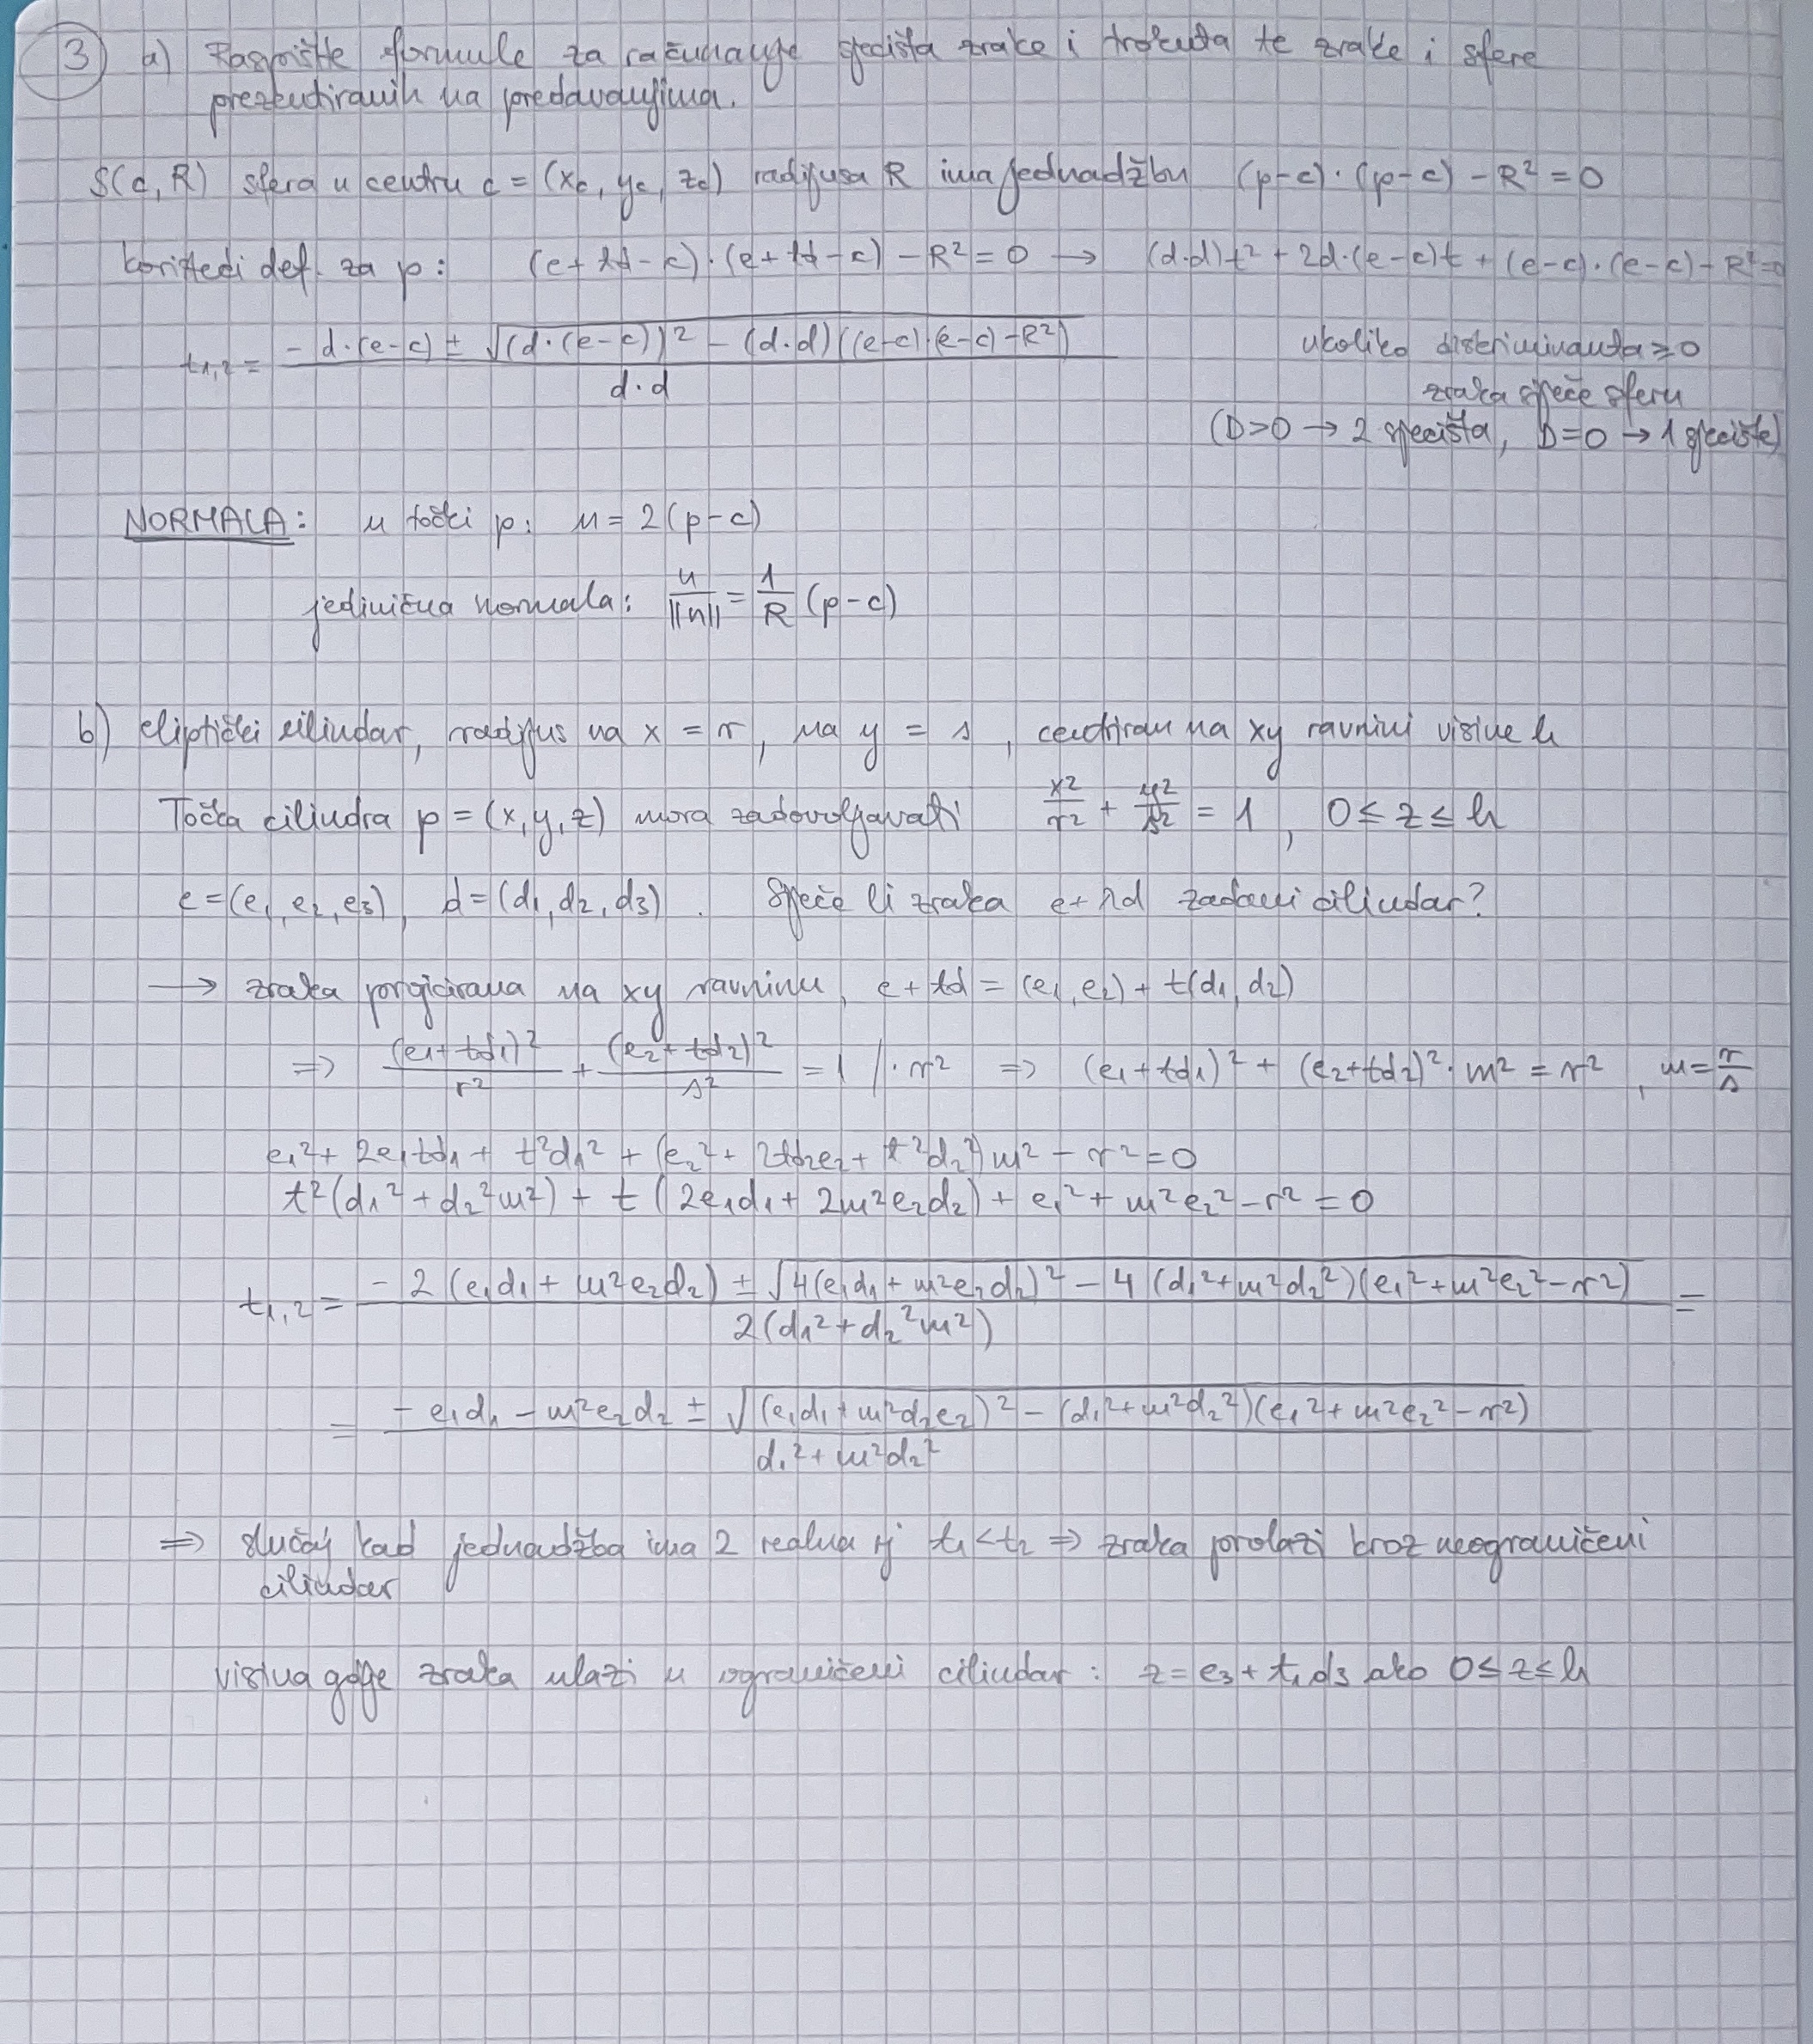 3 a) Raspišite formule za računanje sjecišta zrake i trokuta te zrake i sfere
prezentiranih na predavanjima.
S(c, R) sfera u centru c = (xc, yc, zc) radijusa R ima jednadžbu (p-c)·(p-c) - R² = 0
koristeći def. za p: (e+td-c)·(e+td-c) - R² = 0 → (d·d)t² + 2d·(e-c)t + (e-c)·(e-c) - R² = 0
t1,2 = (-d·(e-c) ± √((d·(e-c))² - (d·d)((e-c)·(e-c)-R²))) / (d·d)
ukoliko diskriminanta ≥ 0
zraka siječe sferu
(D>0 → 2 sjecišta, D=0 → 1 sjecište)
NORMALA: u točki p: n = 2(p-c)
jedinična normala: n/||n|| = 1/R (p-c)
b) eliptički cilindar, radijus na x = r, na y = s, centriran na xy ravnini visine h
Točka cilindra p = (x, y, z) mora zadovoljavati x²/r² + y²/s² = 1, 0 ≤ z ≤ h
e = (e1, e2, e3), d = (d1, d2, d3). Siječe li zraka e+td zadani cilindar?
→ zraka projicirana na xy ravninu, e+td = (e1, e2) + t(d1, d2)
⇒ (e1+td1)²/r² + (e2+td2)²/s² = 1 /·r² ⇒ (e1+td1)² + (e2+td2)²·m² = r², m = r/s
e1² + 2e1td1 + t²d1² + (e2² + 2td2e2 + t²d2²)m² - r² = 0
t²(d1² + d2²m²) + t(2e1d1 + 2m²e2d2) + e1² + m²e2² - r² = 0
t1,2 = (-2(e1d1 + m²e2d2) ± √(4(e1d1 + m²e2d2)² - 4(d1² + m²d2²)(e1² + m²e2² - r²))) / (2(d1² + d2²m²)) =
= (-e1d1 - m²e2d2 ± √((e1d1 + m²d2e2)² - (d1² + m²d2²)(e1² + m²e2² - r²))) / (d1² + m²d2²)
⇒ slučaj kad jednadžba ima 2 realna rj t1 < t2 ⇒ zraka prolazi kroz neograničeni
cilindar
visina gdje zraka ulazi u ograničeni cilindar: z = e3 + t1d3 ako 0 ≤ z ≤ h